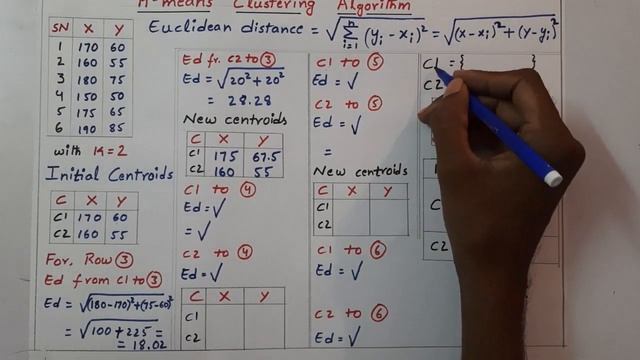 K-means Clustering Algorithm
Euclidean distance = √Σⁿᵢ₌₁ (yᵢ - xᵢ)² = √(x-xᵢ)² + (y-yᵢ)²
SN X Y
1 170 60
2 160 55
3 180 75
4 150 50
5 175 65
6 190 85
with K=2
Initial Centroids
C X Y
C1 170 60
C2 160 55
For Row 3
Ed from C1 to 3
Ed = √(180-170)²+(75-60)²
= √100+225 =
= 18.02
Ed fr. C2 to 3
Ed = √20²+20²
= 28.28
New centroids
C X Y
C1 175 67.5
C2 160 55
C1 to 4
Ed = √
= √
C2 to 4
Ed = √
C X Y
C1
C2
C1 to 5
Ed = √
C2 to 5
Ed = √
=
New centroids
C X Y
C1
C2
C1 to 6
Ed = √
C2 to 6
Ed = √
C1 = { }
C2
C
C2